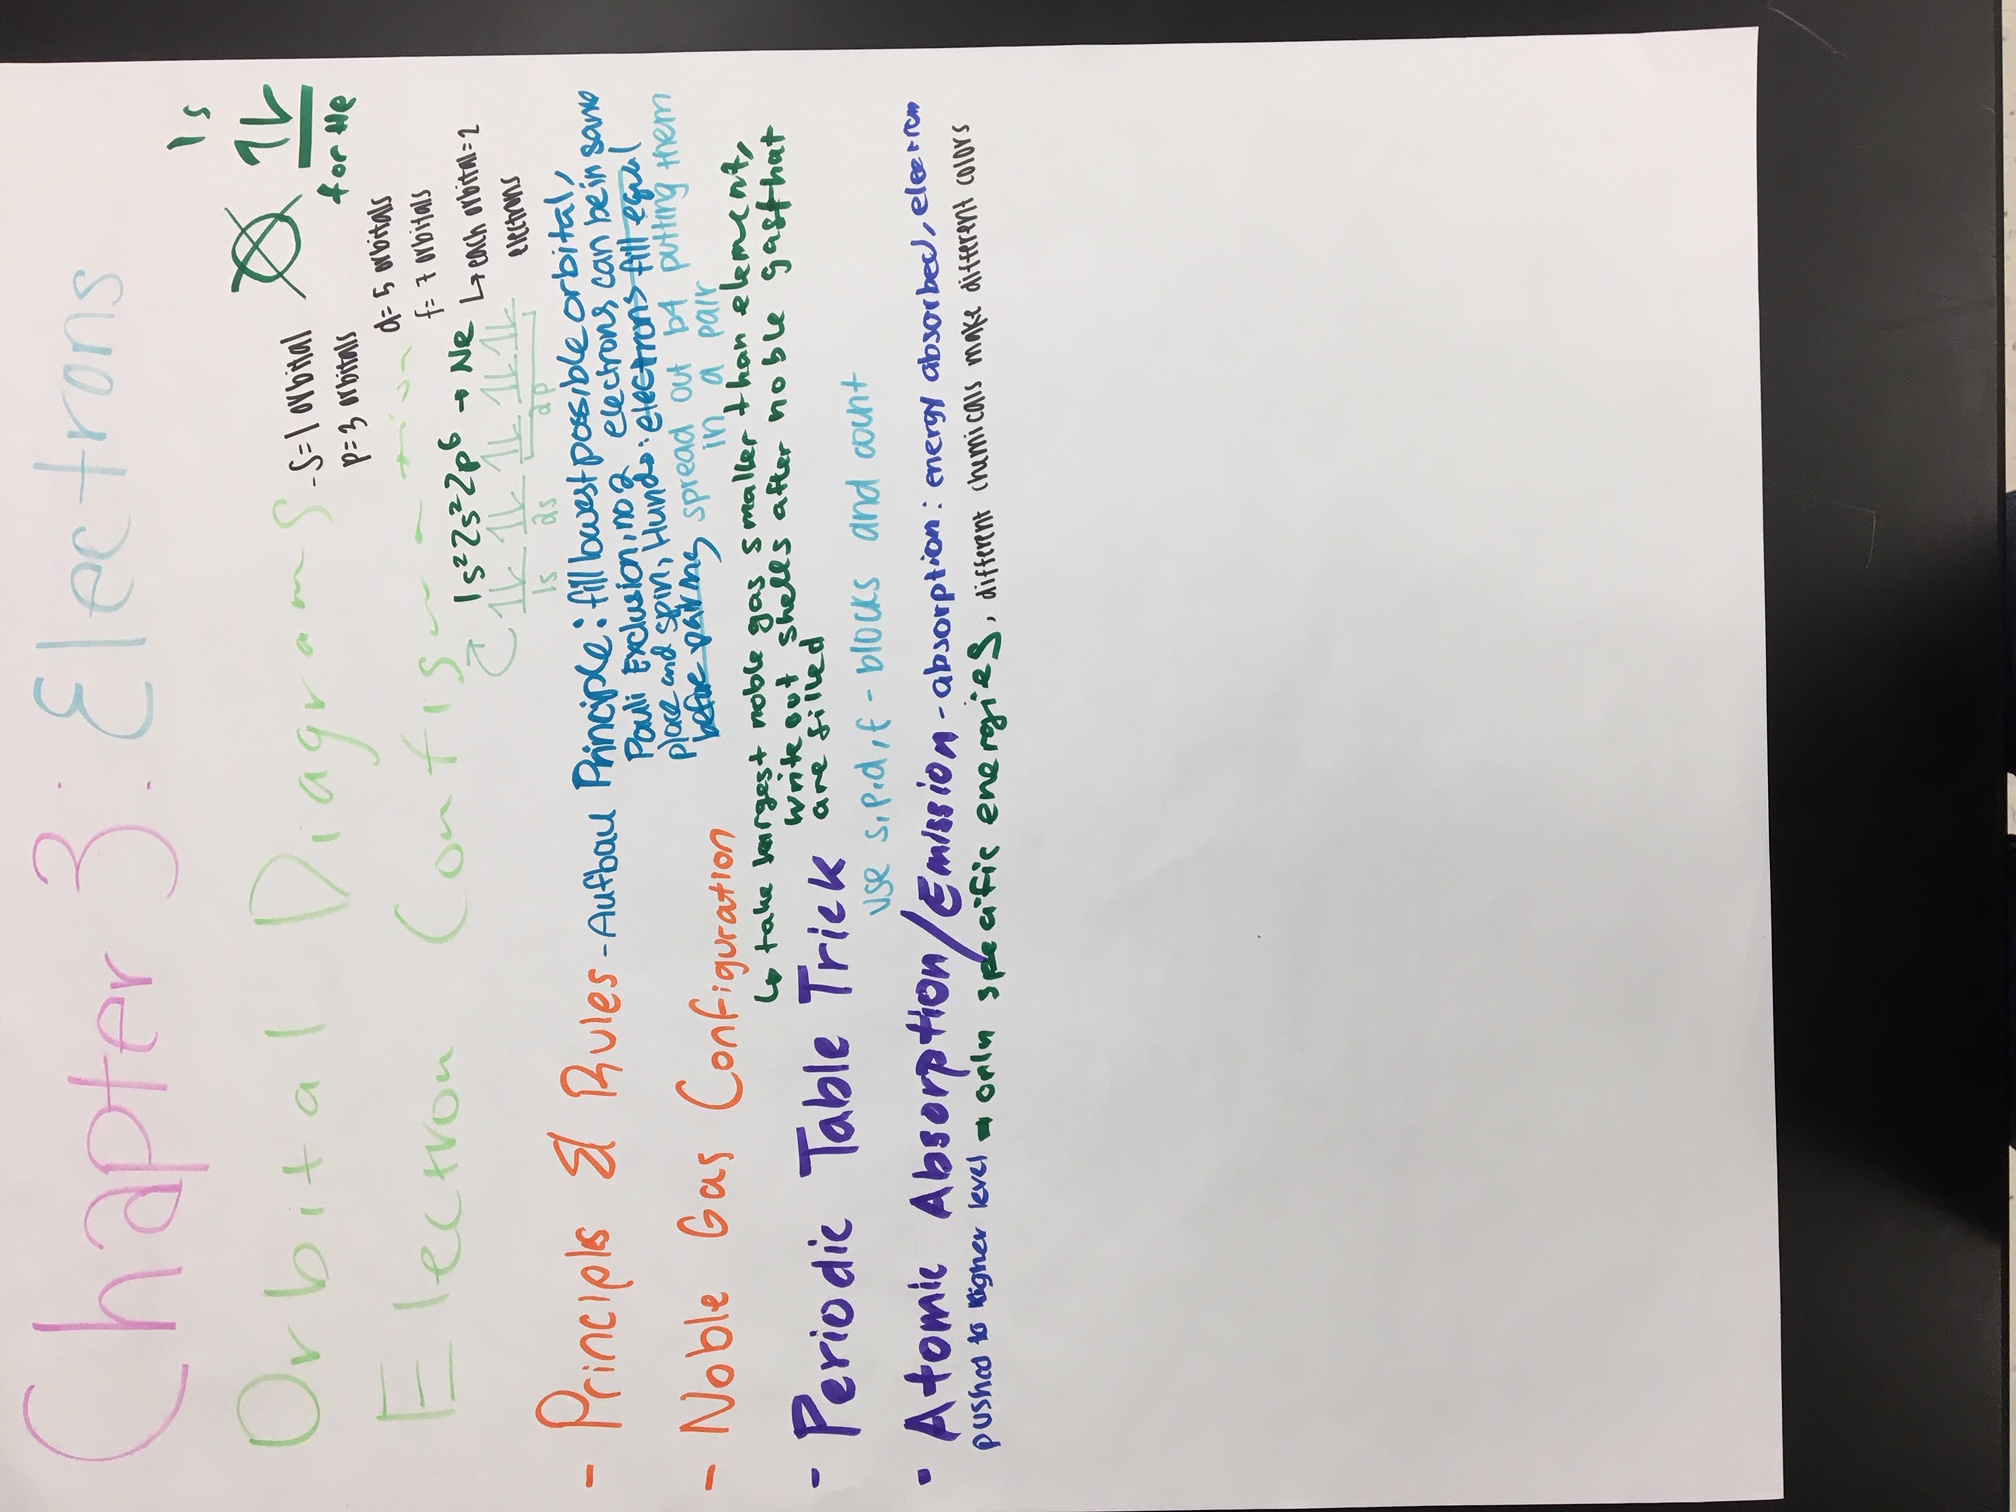 Chapter 3: Electrons
Orbital Diagrams
-S=1 orbital
p=3 orbitals
d=5 orbitals
f=7 orbitals
↳each orbital=2
electrons
1s
1↓
for He
Electron Config
1s²2s²2p⁶ → Ne
1s 2s 2p
- Principls & Rules -Aufbau Principle: fill lowest possible orbital,
Pauli Exclusion, no 2 electrons can be in same
place and spin, Hunds: electrons fill equal
before pairing spread out b4 putting them
in a pair
- Noble Gas Configuration
↳ take largest noble gas smaller than element,
write out shells after noble gas that
are filled
- Periodic Table Trick
use s,p,d,f-blocks and count
· Atomic Absorption/Emission -absorption: energy absorbed, electron
pushed to higher level → only specific energies, different chemicals make different colors